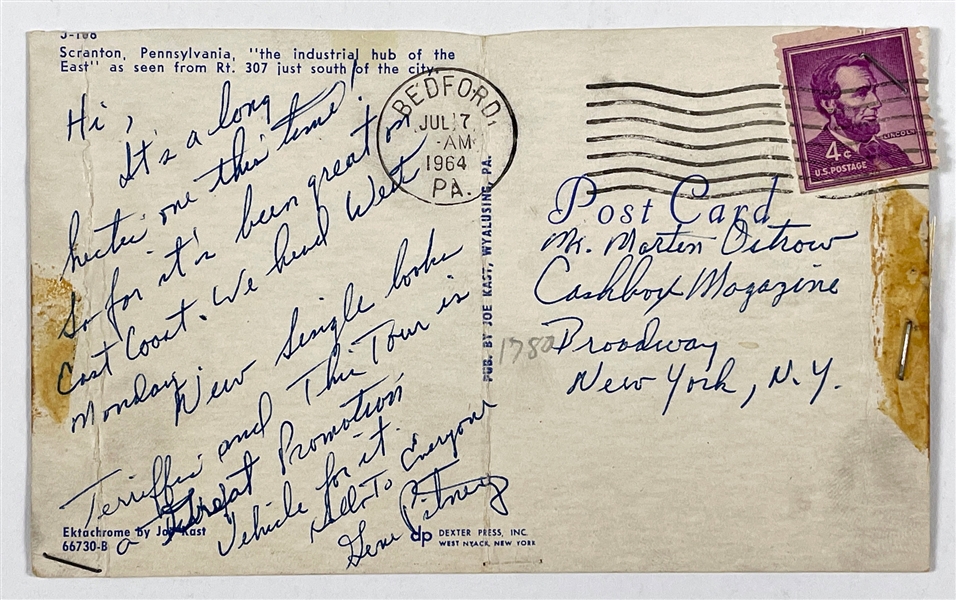 J-108
Scranton, Pennsylvania, "the industrial hub of the
East" as seen from Rt. 307 just south of the city.
Hi,
It's a long
hectic one this time!
So far it's been great on
East Coast. We head West
Monday.
New Single looks
Terriffic and This Tour is
a Great Promotion
Vehicle for it.
Hello To Everyone
Gene Pitney
Ektachrome by Joe Kast
66730-B
PUB. BY JOE KAST, WYALUSING, PA.
dp DEXTER PRESS, INC.
WEST NYACK, NEW YORK
BEDFORD,
JUL 17
-AM
1964
PA.
LINCOLN
4¢
U.S. POSTAGE
Post Card
Mr. Marten Ostrow
Cashbox Magazine
1780 Broadway
New York, N.Y.